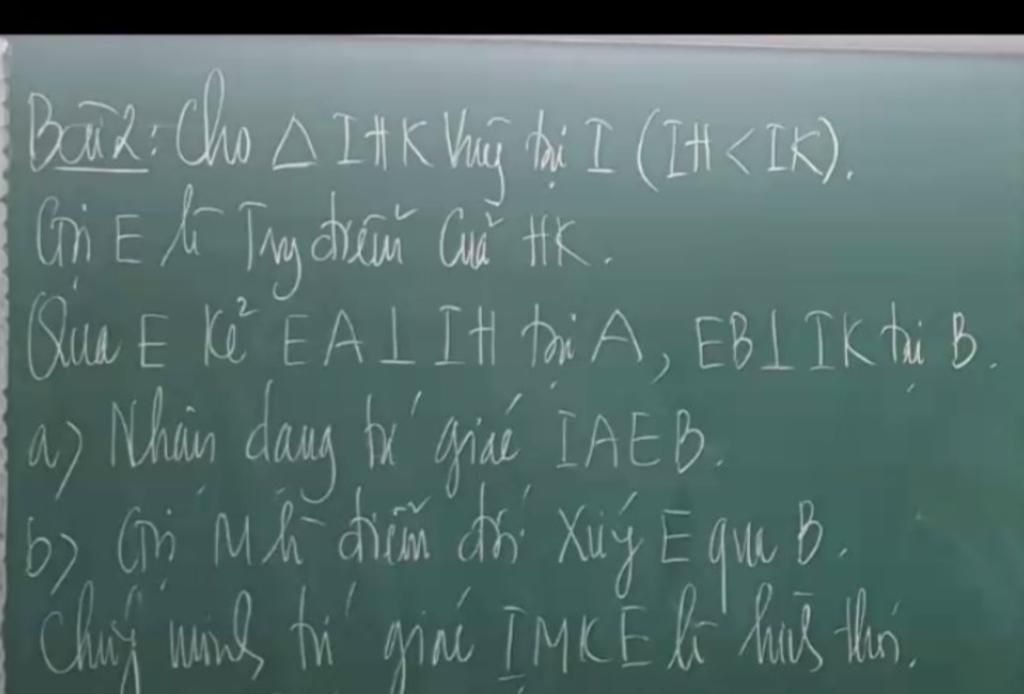 Bài 2: Cho △ IHK vuông tại I (IH < IK).
Gọi E là Trung điểm của HK.
Qua E kẻ EA ⊥ IH tại A, EB ⊥ IK tại B.
a) Nhận dạng tứ giác IAEB.
b) Gọi M là điểm đối xứng E qua B.
Chứng minh tứ giác IMKE là hình thoi.